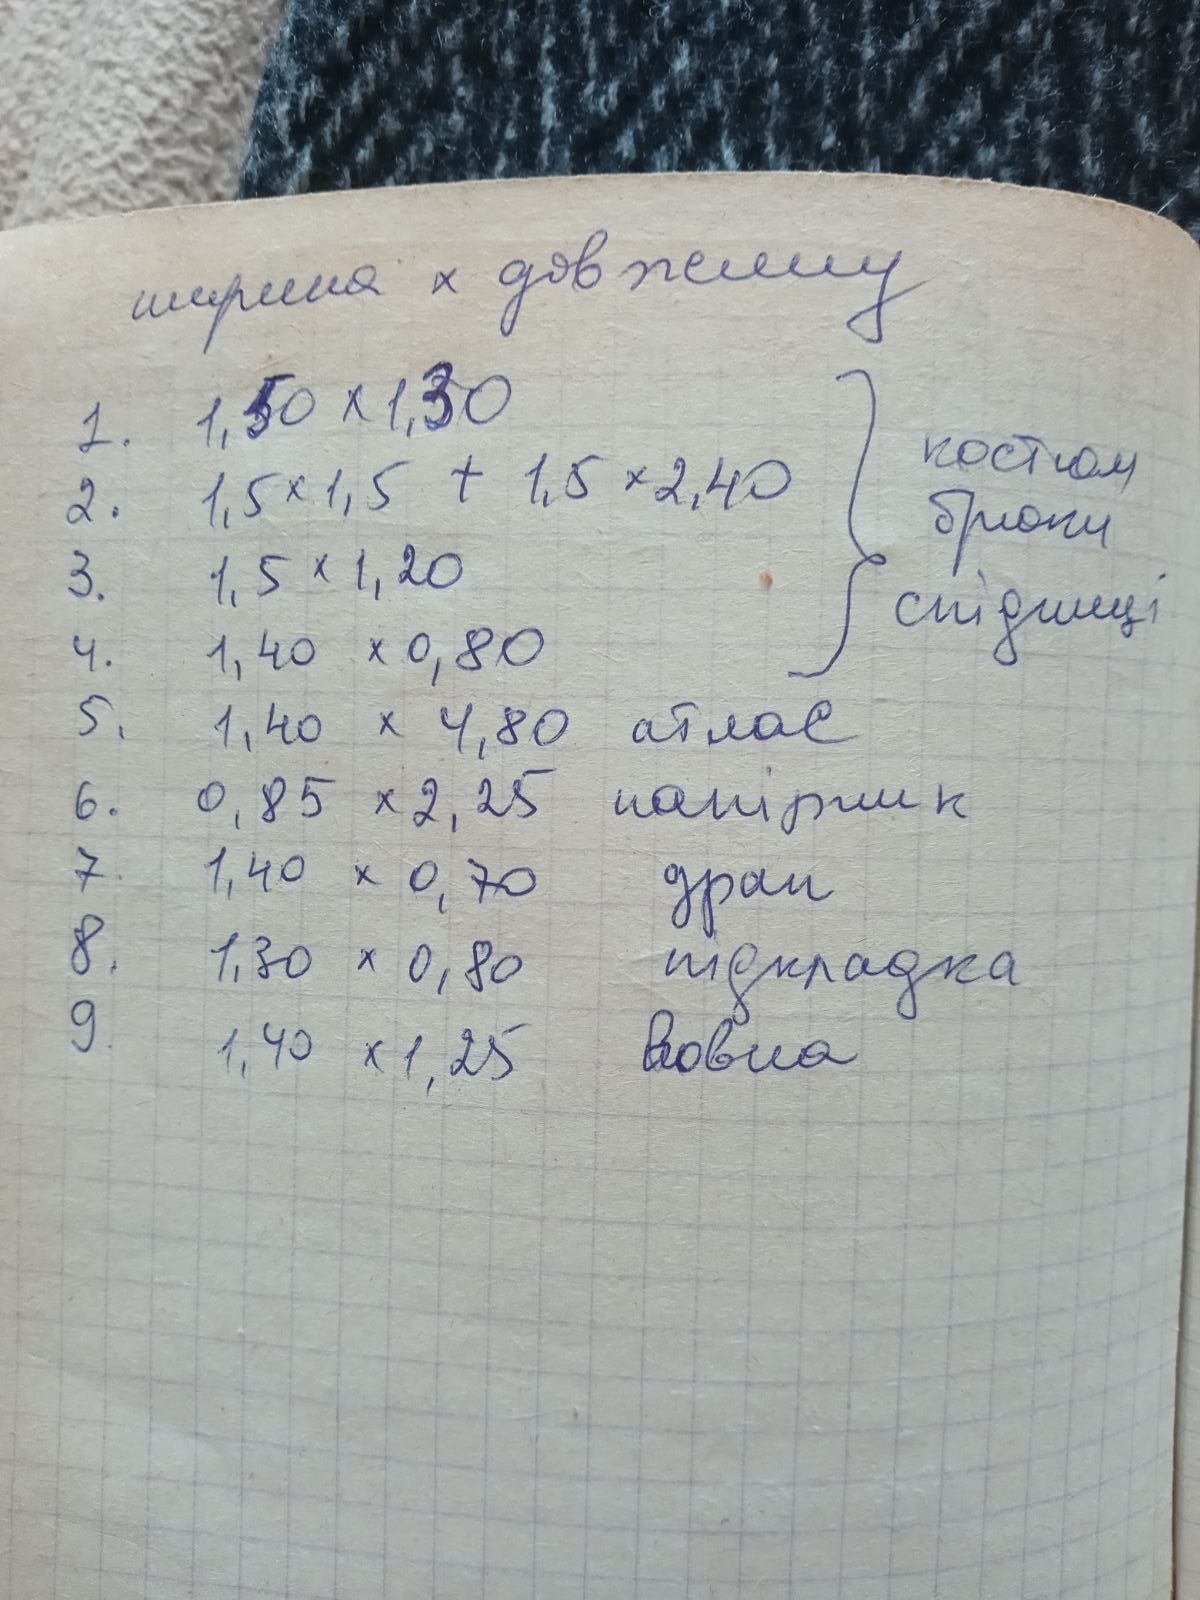 ширина х довжину
1. 1,50 х 1,30
2. 1,5 х 1,5 + 1,5 х 2,40
3. 1,5 х 1,20
4. 1,40 х 0,80
костюм
брюки
спідниці
5. 1,40 х 4,80 атлас
6. 0,85 х 2,25 напірник
7. 1,40 х 0,70 драп
8. 1,30 х 0,80 підкладка
9. 1,40 х 1,25 Вовна